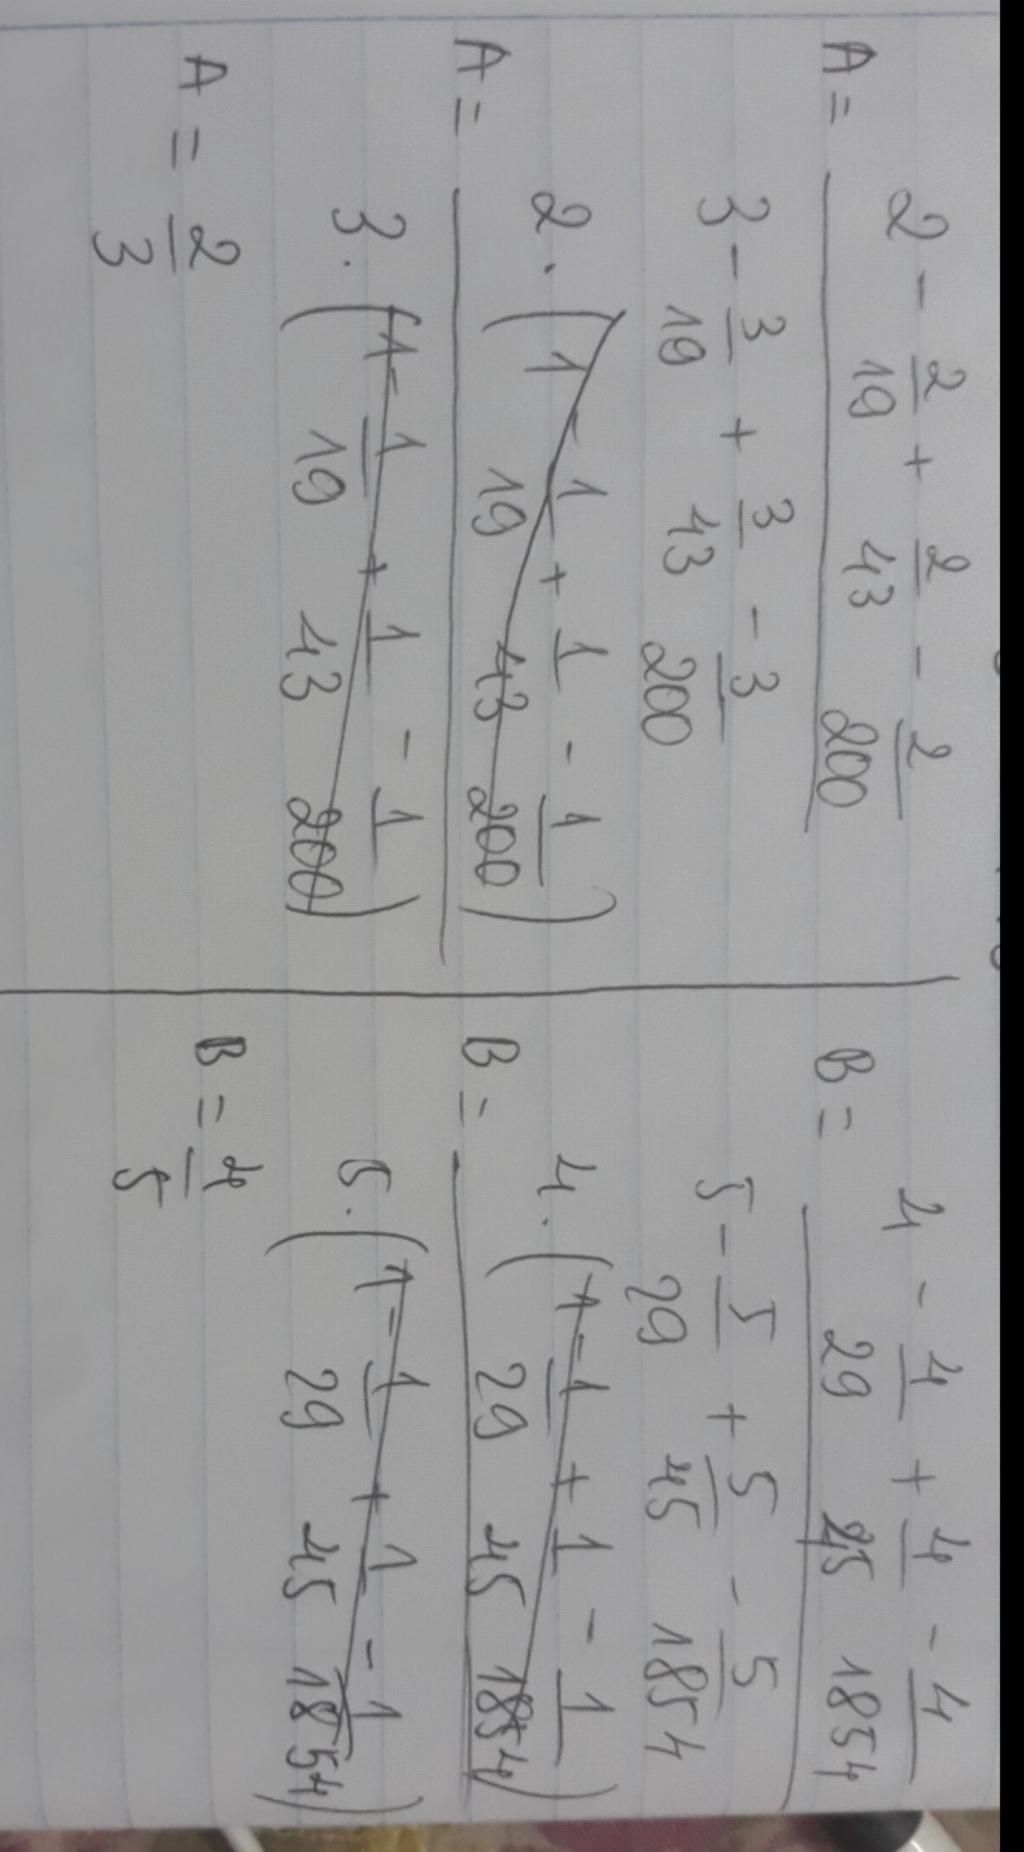 A = (2 - 2/19 + 2/43 - 2/200) / (3 - 3/19 + 3/43 - 3/200)
A = (2 · (1 - 1/19 + 1/43 - 1/200)) / (3 · (1 - 1/19 + 1/43 - 1/200))
A = 2/3
B = (4 - 4/29 + 4/45 - 4/1854) / (5 - 5/29 + 5/45 - 5/1854)
B = (4 · (1 - 1/29 + 1/45 - 1/1854)) / (5 · (1 - 1/29 + 1/45 - 1/1854))
B = 4/5